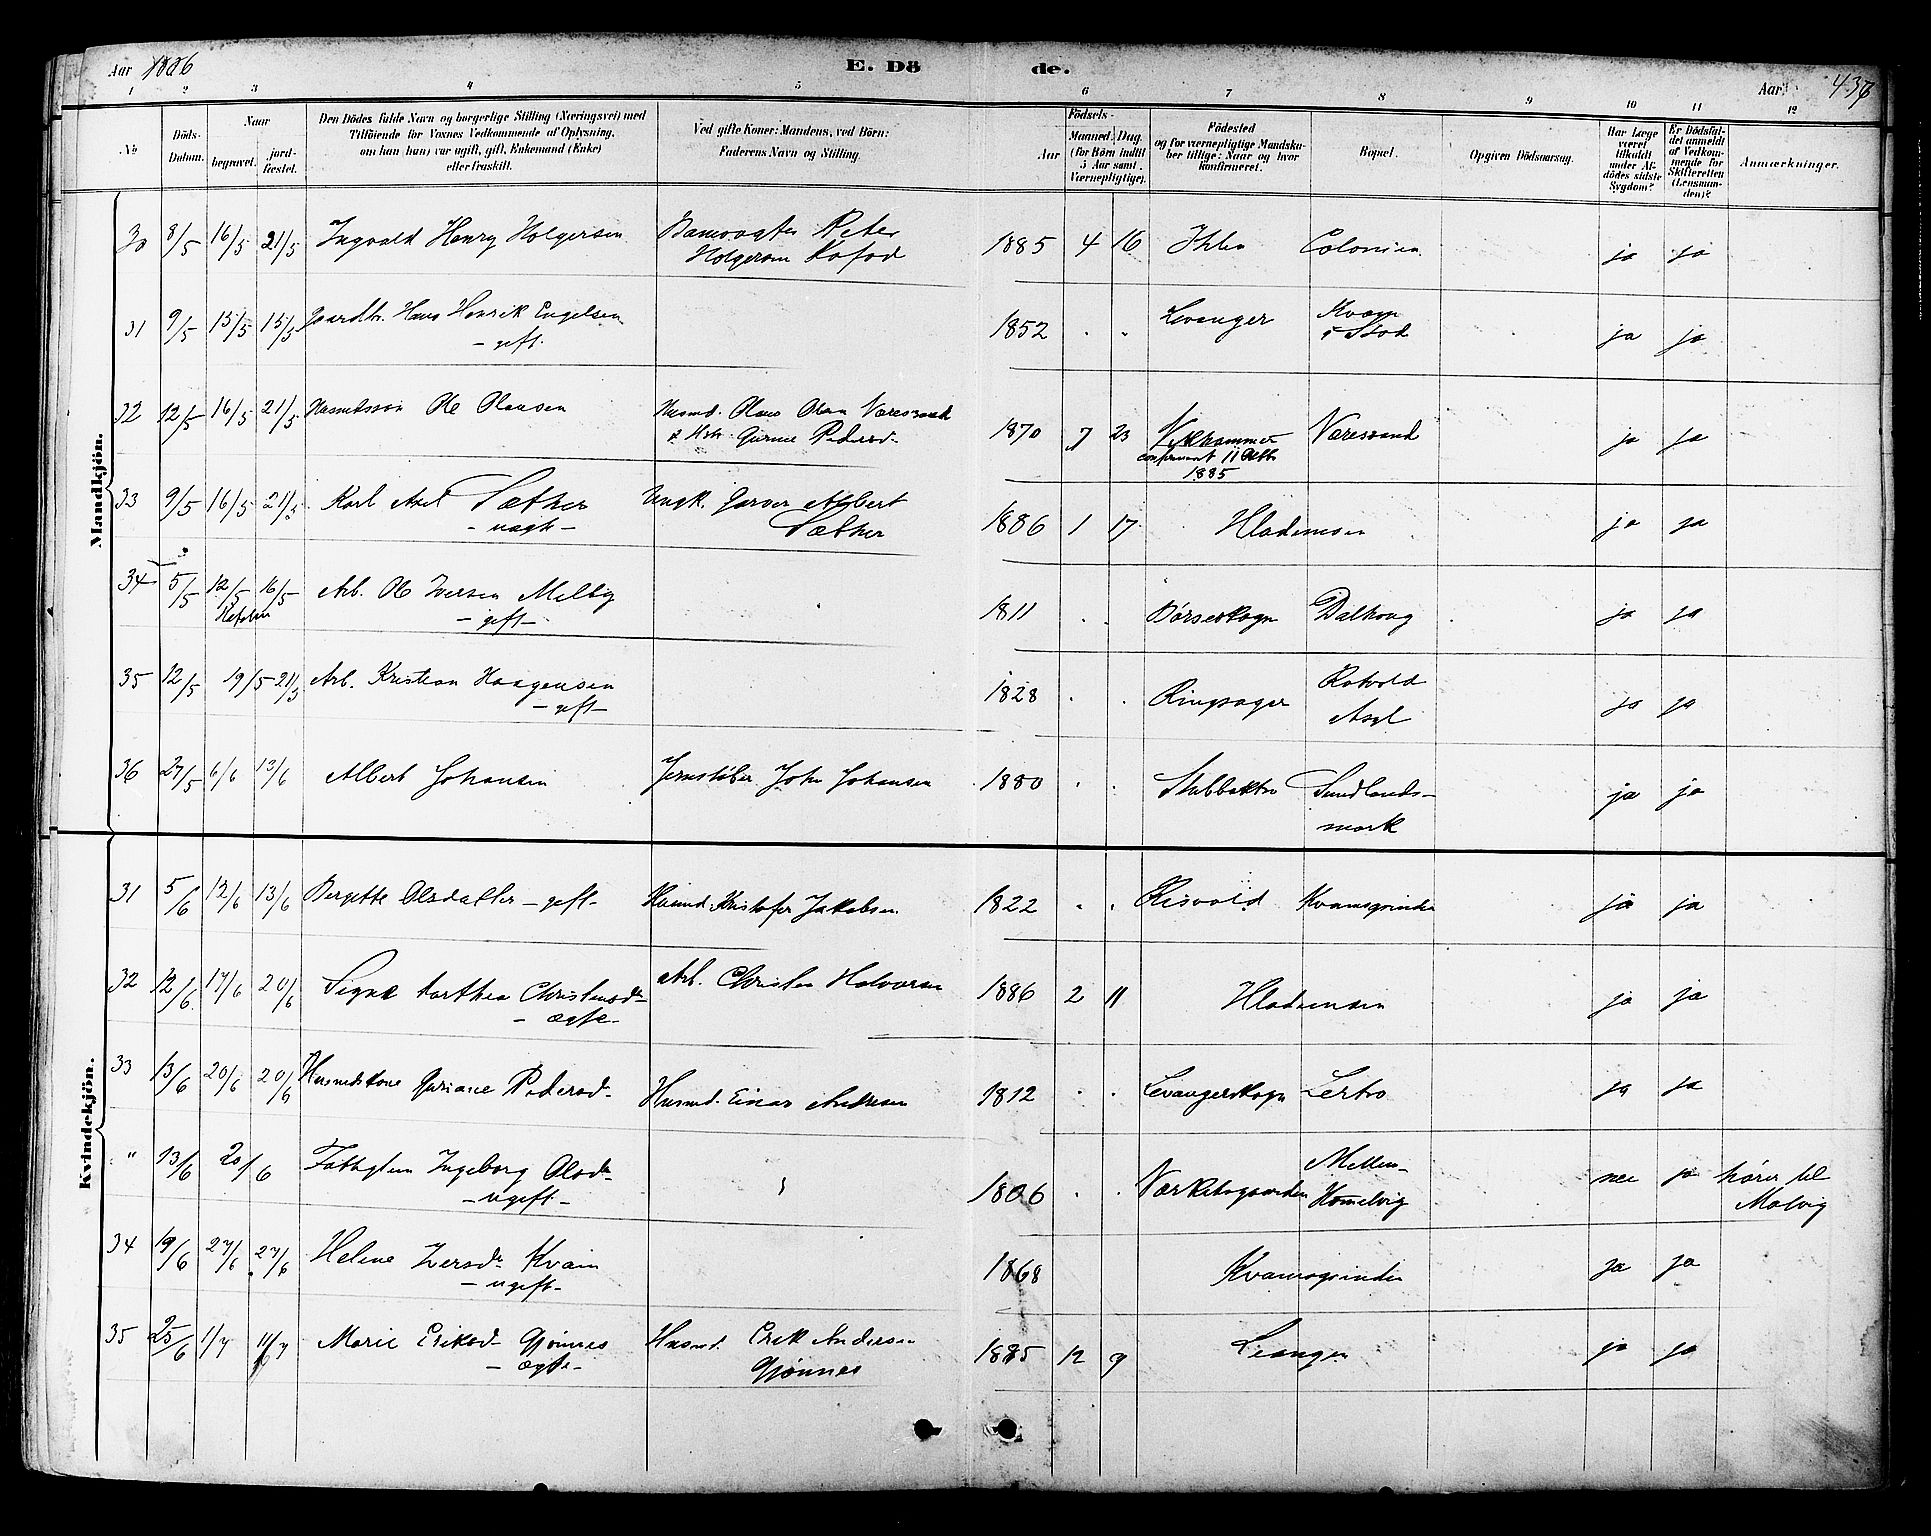 Aar 1886 E. Döde. Aar 438
1 2 3 4 5 6 7 8 9 10 11 12
No
Döds-Datum.
Naar
begravet.
jordfæstet.
Den Dödes fulde Navn og borgerlige Stilling (Næringsvei) med
Tilföiende for Voxnes Vedkommende af Oplysning,
om han (hun) var ugift, gift, Enkemand (Enke)
eller fraskilt.
Ved gifte Koner: Mandens, ved Börn:
Faderens Navn og Stilling.
Födsels-
Aar
Maaned. Dag.
(for Börn indtil
5 Aar samt
Værnepligtige).
Födested
og for værnepligtige Mandskaber tillige: Naar og hvor
konfirmeret.
Bopæl.
Opgiven Dödsaarsag.
Har Læge
været
tilkaldt
under Afdödes sidste
Sygdom?
Er Dödsfaldet anmeldt
af Vedkommende for
Skifteretten
(Lensmanden)?
Anmærkninger.
Mandkjön.
30 8/5 16/5 21/5 Ingvald Henry Holgersen Banevogter Peter 1885 4 16 Ihlen Colonien ja ja
Holgersen Kofod
31 9/5 15/5 15/5 Gaardbr. Hans Henrik Engelsen 1852 Levanger Kvam ja ja
- gift - i Stod
32 12/5 16/5 21/5 Husmdssøn Ole Olausen Husmd. Olaus Olsen Væresvand 1870 7 23 Vikhammer Væresvand ja ja
Gurine Pedersd. confirmeret 11 Octbr
1885
33 9/5 16/5 21/5 Karl Axel Sæther Ungk. Garver Albert 1886 1 17 Hlademoen ja ja
- uægte - Sæther
34 5/5 12/5 16/5 Arb. Ole Iversen Melby 1811 Børseskogn Dalhaug ja ja
- gift -
35 12/5 19/5 21/5 Arb. Kristian Haagensen 1828 Ringsager Rotvold ja ja
- gift - Asyl
36 27/5 6/6 13/6 Albert Johansen Jernstøber John Johansen 1880 Stubbaktrø Sundlands- ja ja
mark
Kvindekjön.
31 5/6 12/6 13/6 Bergitte Olsdatter - gift - Husmd. Kristofer Jakobsen 1822 Risvold Kvamsgrinden ja ja
32 12/6 17/6 20/6 Signe Dorthea Christensdr Arb. Christen Halvorsen 1886 2 11 Hlademoen ja ja
- ægte -
33 13/6 20/6 20/6 Husmdskone Guriane Pedersd. Husmd. Einar Andresen 1812 Levangerskogn Lerbro ja ja
" 13/6 20/6 Fattiglem Ingeborg Olsdr 1806 Værkstogaarden Mellem- nei ja hører til
- ugift - Hommelvig Malvig
34 19/6 27/6 27/6 Helene Iversdr Kvam 1868 Kvamsgrinden ja ja
- ugift -
35 25/6 1/7 11/7 Marie Eriksd. Gjønnes Husmd. Erik Andersen 1885 12 9 Leangen ja ja
- ægte - Gjønnes